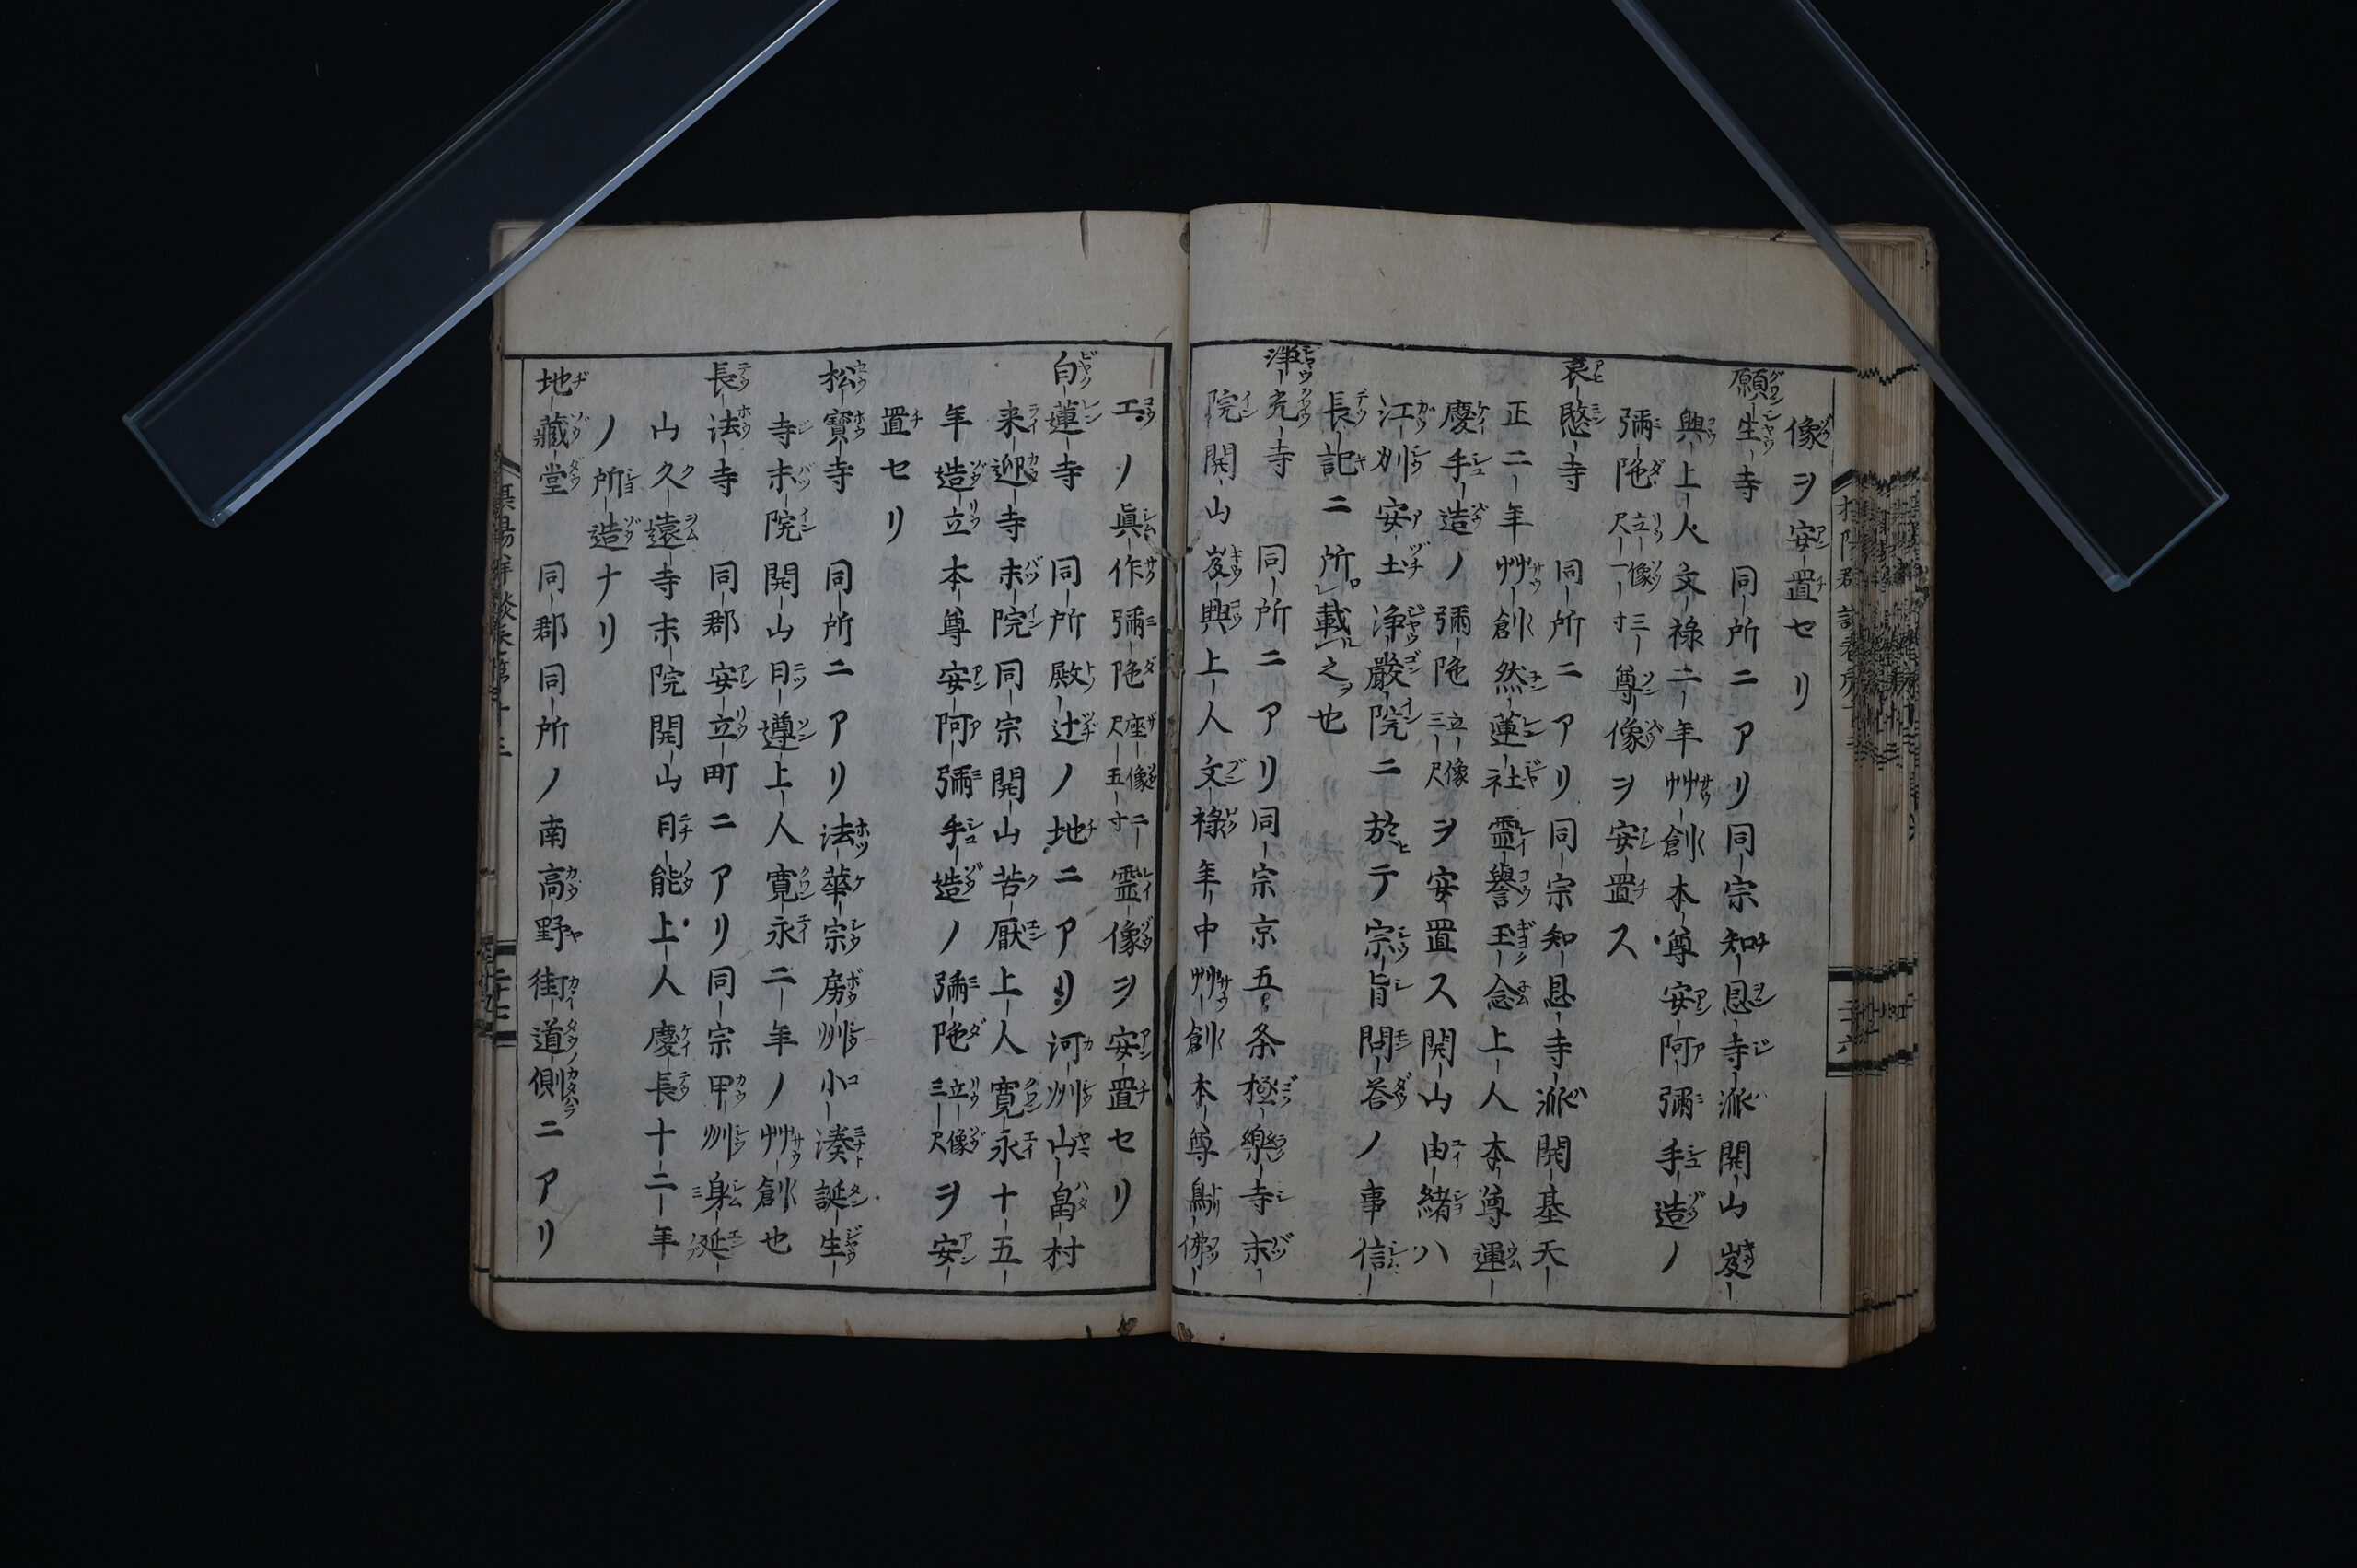 像ヲ安置セリ
願生寺 同所ニアリ同宗知恩寺派開山岌
興上人文祿二年艸創本尊安阿彌手造ノ
彌陁立像一尺三寸尊像ヲ安置ス
哀愍寺 同所ニアリ同宗知恩寺派開基天
正二年艸創然蓮社霊譽玉念上人本尊運
慶手造ノ彌陁立像三尺ヲ安置ス開山由緒ハ
江州安土浄嚴院ニ於テ宗旨問荅ノ事信
長記ニ所載之也
浄光寺 同所ニアリ同宗京五条極樂寺末
院開山岌興上人文祿年中艸創本尊鳥佛
工ノ眞作彌陁座像二尺五寸霊像ヲ安置セリ
白蓮寺 同所殿辻ノ地ニアリ河州山畠村
来迎寺末院同宗開山苦厭上人寛永十五
年造立本尊安阿彌手造ノ彌陁立像三尺ヲ安
置セリ
松寳寺 同所ニアリ法華宗房州小湊誕生
寺末院開山日遵上人寛永二年ノ艸創也
長法寺 同郡安立町ニアリ同宗甲州身延
山久遠寺末院開山日能上人慶長十二年
ノ所造ナリ
地藏堂 同郡同所ノ南高野街道側ニアリ
二十七